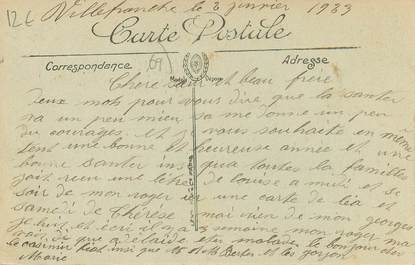 12€
Villefranche le 3 janvier 1933
Carte Postale
Correspondance
69
Adresse
Modèle Déposé
Chère sœur et beau frère
deux mots pour vous dire que la santer
va un peu mieu sa me donne un peu
du courages et je vous souhaite en même
tent une bonne et heureuse année et une
bonne santer ins qua toutes la familles
jait reçu une lètre de Louise a midi et se
soir de mon roger une carte de léa et
samedi de Thérèse mai rien de mon georges
je luit et écri il y a 1 semaine mon roger ma
di que adelaide etai malade le bonjour de
le casimir insi que et les garçon
Marie